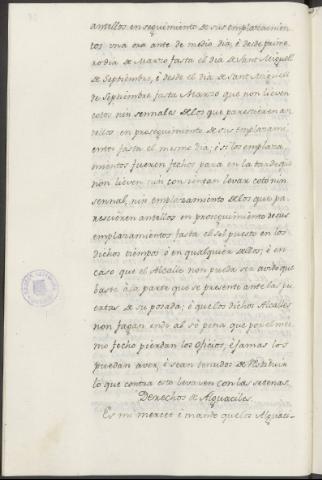 antellos en seguimiento de sus emplazamien
tos una ora ante de medio dia, é desde prime
ro dia de Marzo fasta el dia de Sant Miguell
de Septiembre, é desde el dia de Sant Miguell
de Septiembre fasta Marzo que non lieven
cotos nin sennales de los que parescieren an
tellos en proseguimiento de sus emplazami
entos fasta el mesmo dia; é si los emplaza
mientos fueren fechos para en la tarde que
non lieven nin consientan levar coto nin
sennal, nin emplazamiento de los que pa
rescieren antellos en proseguimiento de sus
emplazamientos fasta el sol puesto en los
dichos tiempos ó en qualquier dellos; é en
caso que el Alcalle non pueda ser avido que
baste á la parte que se presente ante las pu
ertas de su posada; é que los dichos Alcalles
non fagan ende al só pena que por el mes
mo fecho pierdan los oficios, é jamas los
puedan aver, é sean tenudos de restituir
lo que contra esto levaren con las setenas.
Derechos de Alguaciles.
Es mi merced é mando que los Alguaci-